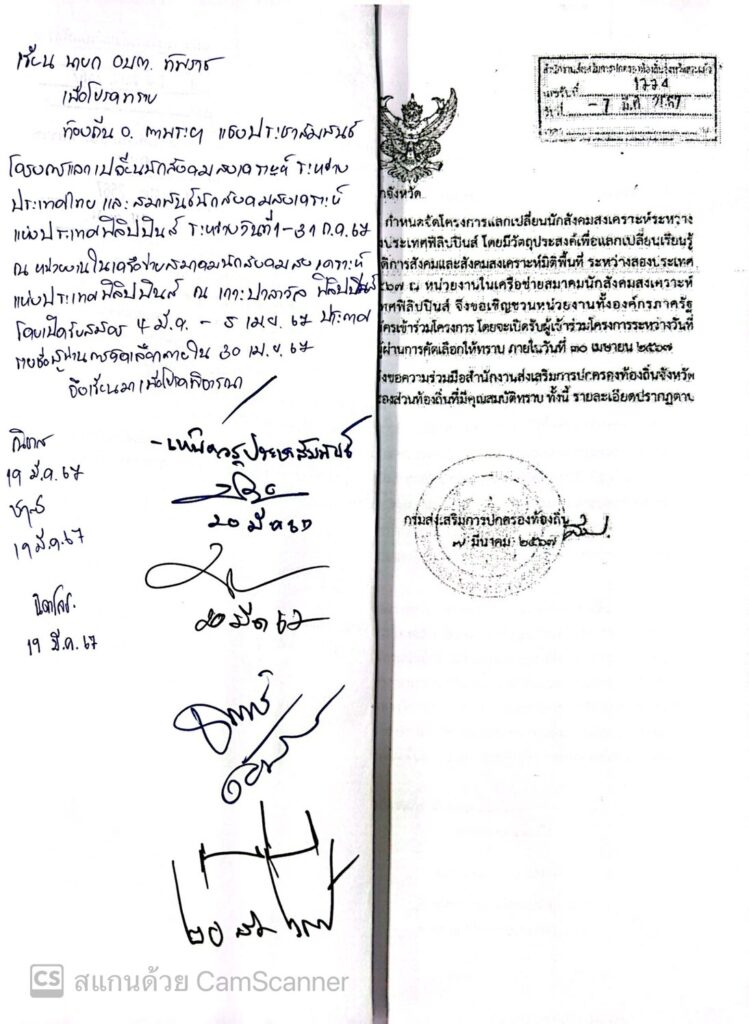 เรียน นายก อบต. ทัพราช
เพื่อโปรดทราบ
ท้องถิ่น อ. ตาพระยา แจ้งประชาสัมพันธ์
โครงการแลกเปลี่ยนนักสังคมสงเคราะห์ ระหว่าง
ประเทศไทย และ สมาพันธ์นักสังคมสงเคราะห์
แห่งประเทศฟิลิปปินส์ ระหว่างวันที่ 1-31 ก.ค. 67
ณ หน่วยงานในเครือข่ายสมาคมนักสังคมสงเคราะห์
แห่งประเทศฟิลิปปินส์ ณ เกาะปาลาวัล ฟิลิปปินส์
โดยเปิดรับสมัคร 4 มี.ค. - 5 เมย. 67 ประกาศ
รายชื่อผู้ผ่านการคัดเลือกภายใน 30 เม.ย. 67
จึงเรียนมาเพื่อโปรดพิจารณา
19 มี.ค. 67
19 มี.ค. 67
19 มี.ค. 67
- เห็นควรประชาสัมพันธ์
20 มีค 67
20 มีค 67
สำนักงานส่งเสริมการปกครองท้องถิ่นจังหวัดสระแก้ว
เลขรับที่ 1774
วันที่ - 7 มี.ค. 2567
เวลา
กจังหวัด
กำหนดจัดโครงการแลกเปลี่ยนนักสังคมสงเคราะห์ระหวาง
งประเทศฟิลิปปินส์ โดยมีวัตถุประสงค์เพื่อแลกเปลี่ยนเรียนรู้
ติการสังคมและสังคมสงเคราะห์มิติพื้นที่ ระหว่างสองประเทศ
๕๖๗ ณ หน่วยงานในเครือข่ายสมาคมนักสังคมสงเคราะห์
ทศฟิลิปปินส์ จึงขอเชิญชวนหน่วยงานทั้งองค์กรภาครัฐ
ัครเข้าร่วมโครงการ โดยจะเปิดรับผู้เข้าร่วมโครงการระหว่างวันที่
ผู้ผ่านการคัดเลือกให้ทราบ ภายในวันที่ ๓๐ เมษายน ๒๕๖๗
งขอความร่วมมือสำนักงานส่งเสริมการปกครองท้องถิ่นจังหวัด
องส่วนท้องถิ่นที่มีคุณสมบัติทราบ ทั้งนี้ รายละเอียดปรากฏตาม
กรมส่งเสริมการปกครองท้องถิ่น
๗ มีนาคม ๒๕๖๗
CS สแกนด้วย CamScanner